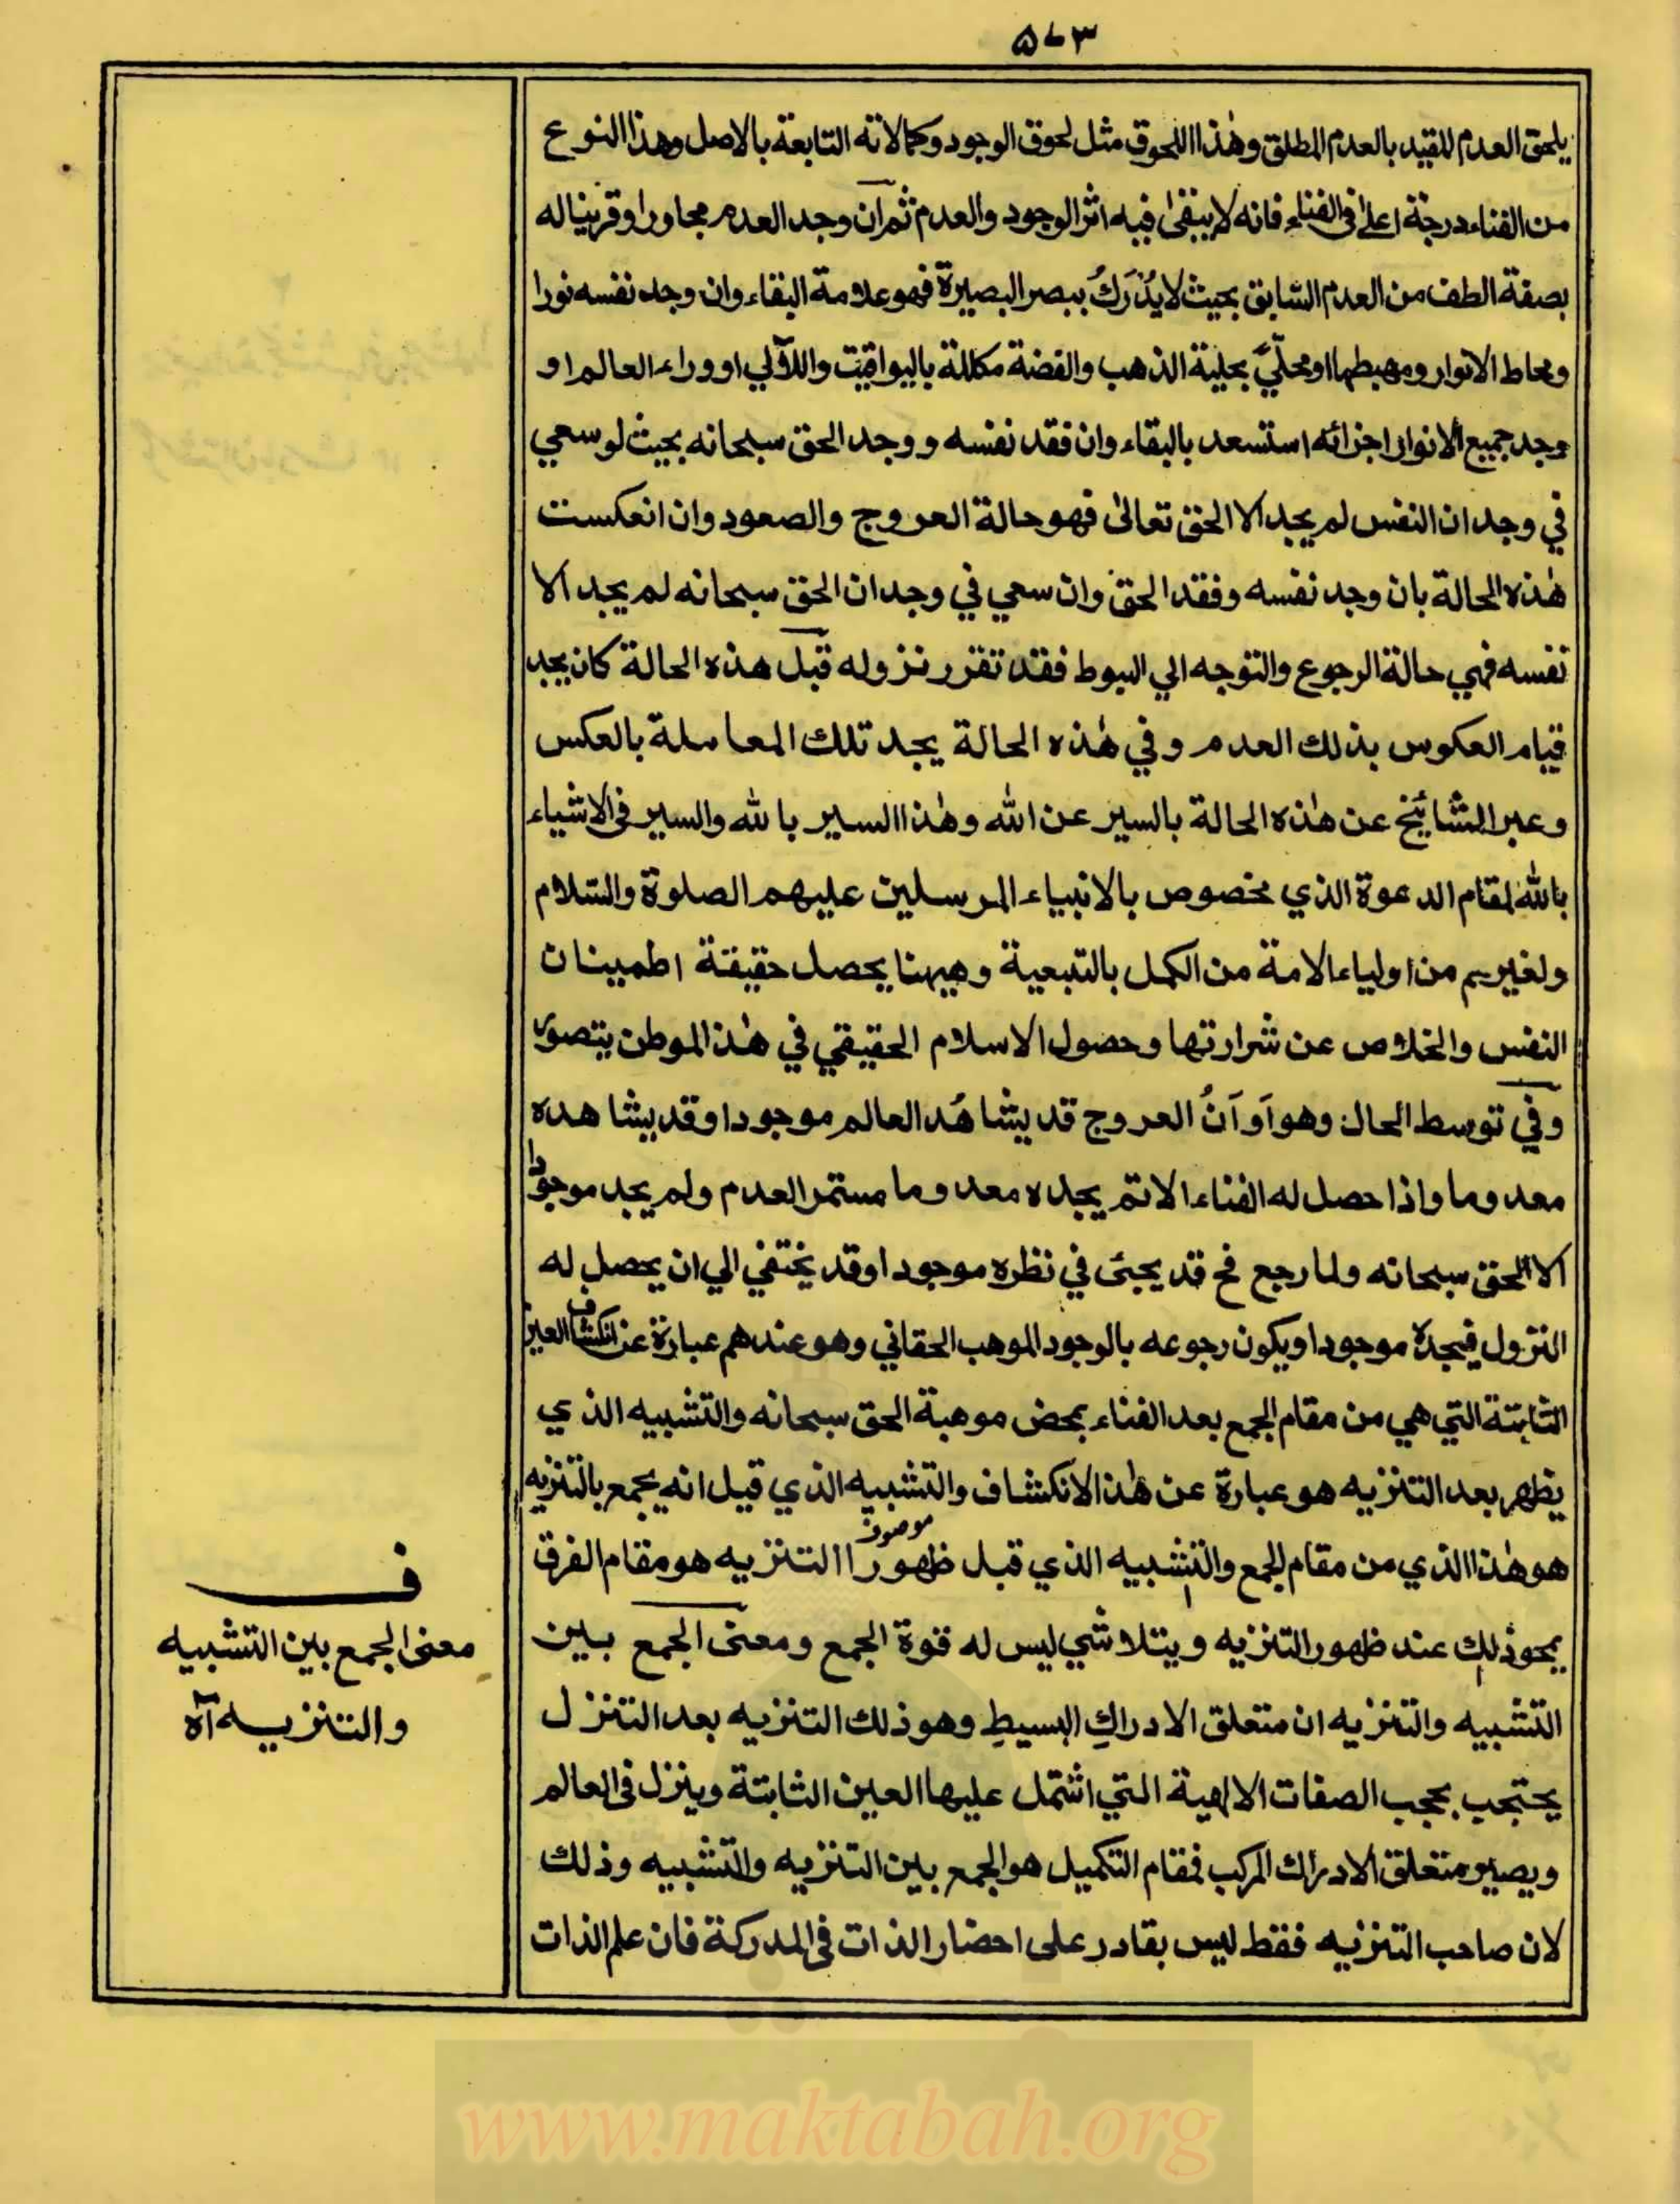 ۵۷۳
يلحق العدم المقيد بالعدم المطلق وهذا اللحوق مثل لحوق الوجود وكمالاته التابعة بالاصل وهذا النوع
من الفناء درجة اعلى في الفناء فانه لا يبقى فيه اثر الوجود والعدم ثم ان وجد العدم مجاورا وقرينا له
بصفة الطف من العدم السابق بحيث لا يُدْرَكُ ببصر البصيرة فهو علامة البقاء وان وجد نفسه نورا
ومحاط الانوار ومهبطها او محلّيً بحلية الذهب والفضة مكللة باليواقيت واللآلي او وراء العالم او
وجد جميع الانوار اجزائه استسعد بالبقاء وان فقد نفسه ووجد الحق سبحانه بحيث لو سعي
في وجدان النفس لم يجد الا الحق تعالى فهو حالة العروج والصعود وان انعكست
هذه الحالة بان وجد نفسه وفقد الحق وان سعي في وجدان الحق سبحانه لم يجد الا
نفسه فهي حالة الرجوع والتوجه الي الهبوط فقد تقرر نزوله قبل هذه الحالة كان يجد
قيام العكوس بذلك العدم وفي هذه الحالة يجد تلك المعاملة بالعكس
وعبر المشائخ عن هذه الحالة بالسير عن الله وهذا السير بالله والسير في الاشياء
بالله لمقام الدعوة الذي مخصوص بالانبياء المرسلين عليهم الصلوة والسلام
ولغيرهم من اولياء الامة من الكمل بالتبعية وههنا يحصل حقيقة اطمينان
النفس والخلاص عن شرارتها وحصول الاسلام الحقيقي في هذا الموطن يتصور
وفي توسط الحال وهو آوَانُ العروج قد يشاهُد العالم موجودا وقد يشاهده
معدوما واذا حصل له الفناء الاتم يجده معدوما مستمر العدم ولم يجد موجودا
الا الحق سبحانه ولما رجع فح قد يجئ في نظره موجودا وقد يختفي الي ان يحصل له
النزول فيجده موجودا ويكون رجوعه بالوجود الموهب الحقاني وهو عندهم عبارة عن انكشاف العين
الثابتة التي هي من مقام الجمع بعد الفناء بمحض موهبة الحق سبحانه والتشبيه الذي
يظهر بعد التنزيه هو عبارة عن هذا الانكشاف والتشبيه الذي قيل انه يجمع بالتنزيه
هو هذا الذي من مقام الجمع والتشبيه الذي قبل ظهور التنزيه هو مقام الفرق
يمحو ذلك عند ظهور التنزيه ويتلاشي ليس له قوة الجمع ومعنى الجمع بين
التشبيه والتنزيه ان متعلق الادراكِ البسيطِ وهو ذلك التنزيه بعد التنزل
يحتجب بحجب الصفات الالهية التي اشتمل عليها العين الثابتة وينزل في العالم
ويصير متعلق الادراك المركب فمقام التكميل هو الجمع بين التنزيه والتشبيه وذلك
لان صاحب التنزيه فقط ليس بقادر على احضار الذات في المدركة فان علم الذات
ف
معنى الجمع بين التشبيه
والتنزيه آه
www.maktabah.org